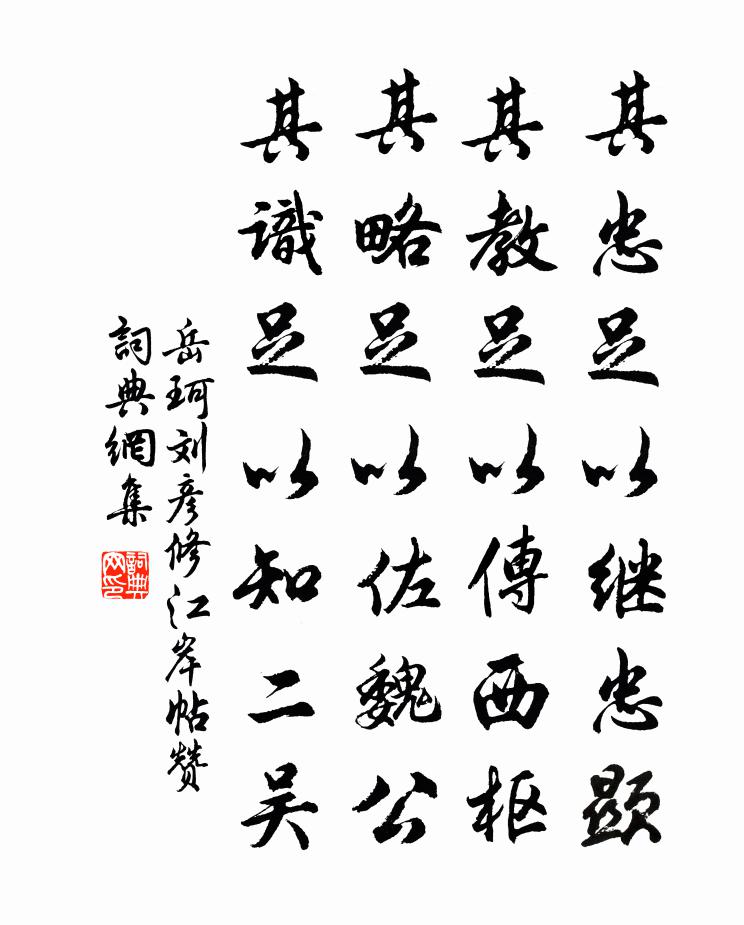 其忠足以继忠显
其教足以傳西枢
其略足以佐魏公
其識足以知二吴
岳珂刘彦修江岸帖赞
詞典網集
詞典网印